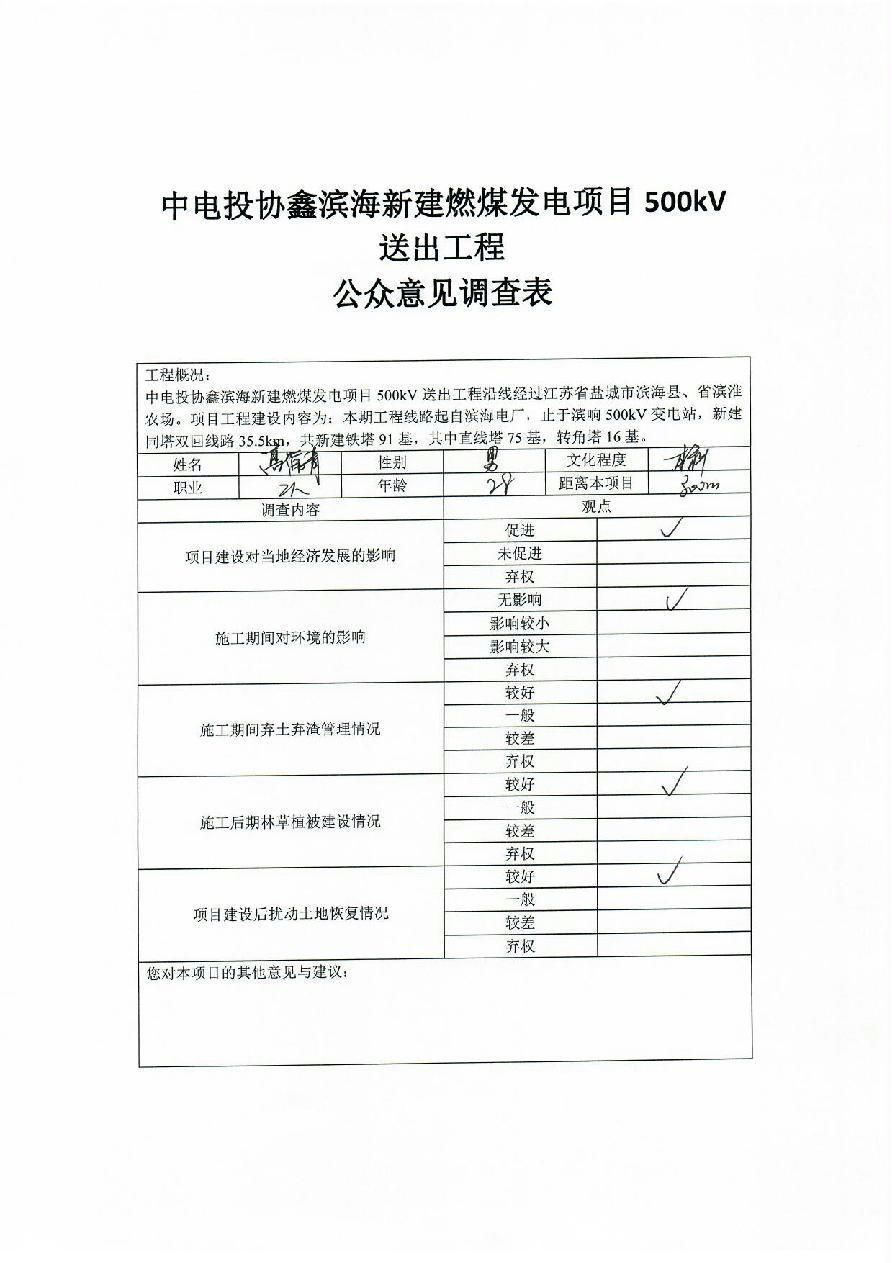 中电投协鑫滨海新建燃煤发电项目 500kV
送出工程
公众意见调查表
工程概况：
中电投协鑫滨海新建燃煤发电项目 500kV 送出工程沿线经过江苏省盐城市滨海县、省滨淮
农场。项目工程建设内容为：本期工程线路起自滨海电厂，止于滨响 500kV 变电站，新建
同塔双回线路 35.5km，共新建铁塔 91 基，其中直线塔 75 基，转角塔 16 基。
姓名 性别 男 文化程度 本科
职业 工人 年龄 28 距离本项目 300m
调查内容 观点
项目建设对当地经济发展的影响
促进 ✓
未促进
弃权
施工期间对环境的影响
无影响 ✓
影响较小
影响较大
弃权
施工期间弃土弃渣管理情况
较好 ✓
一般
较差
弃权
施工后期林草植被建设情况
较好 ✓
一般
较差
弃权
项目建设后扰动土地恢复情况
较好 ✓
一般
较差
弃权
您对本项目的其他意见与建议：